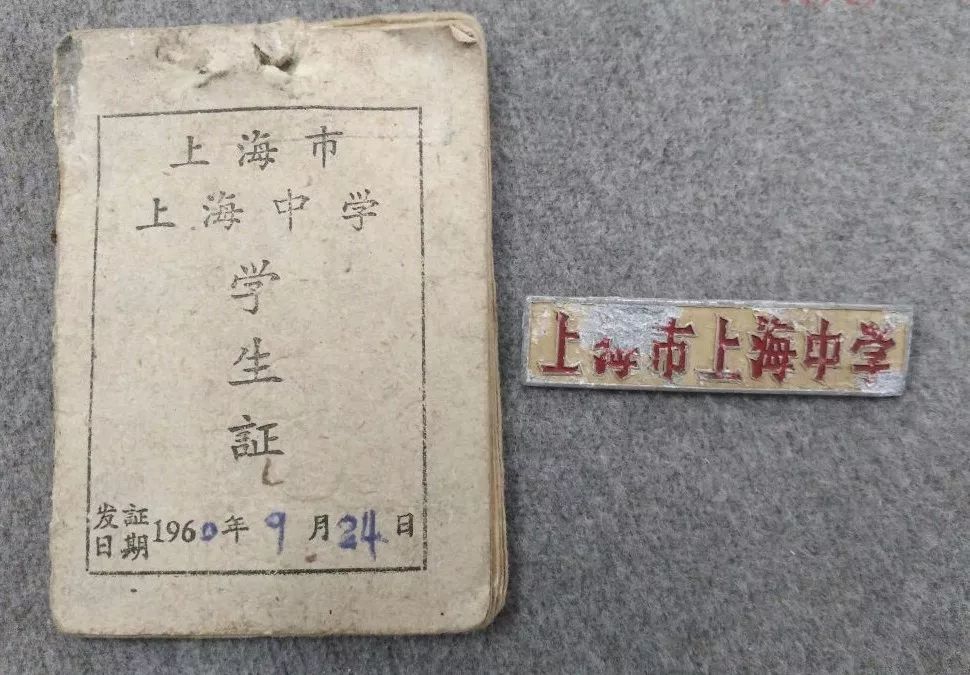 上海市
上海中学
学生証
发証日期1960年9月24日
上海市上海中学